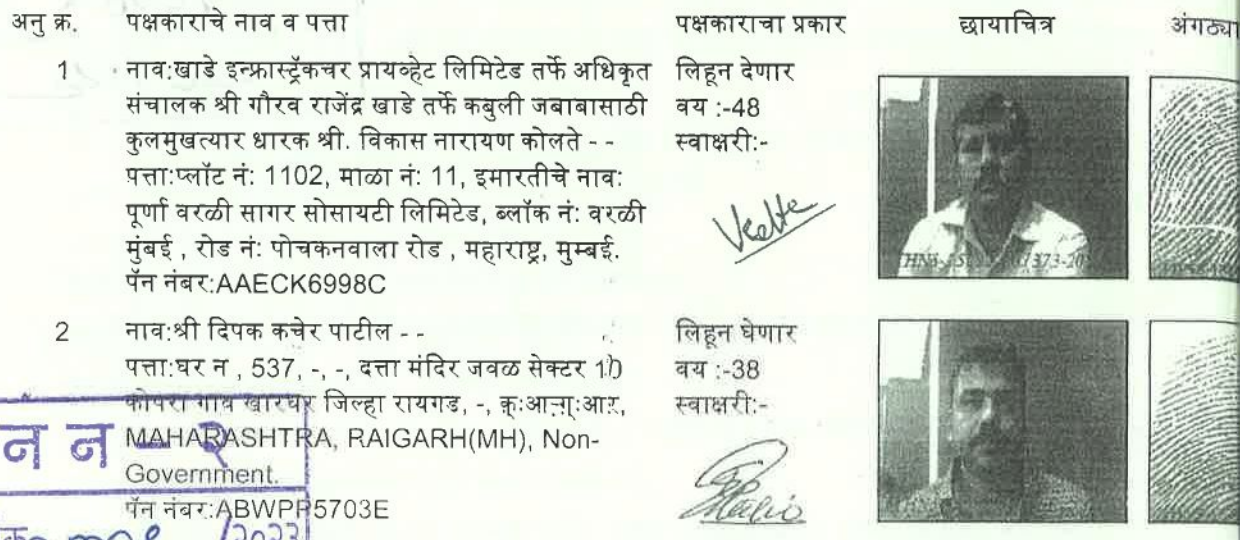 अनु क्र. पक्षकाराचे नाव व पत्ता पक्षकाराचा प्रकार छायाचित्र अंगठ्या
1 नाव:खाडे इन्फ्रास्ट्रॅकचर प्रायव्हेट लिमिटेड तर्फे अधिकृत लिहून देणार
संचालक श्री गौरव राजेंद्र खाडे तर्फे कबुली जबाबासाठी वय :-48
कुलमुखत्यार धारक श्री. विकास नारायण कोलते - - स्वाक्षरी:-
पत्ता:प्लॉट नं: 1102, माळा नं: 11, इमारतीचे नाव:
पूर्णा वरळी सागर सोसायटी लिमिटेड, ब्लॉक नं: वरळी
मुंबई , रोड नं: पोचकनवाला रोड , महाराष्ट्र, मुम्बई.
पॅन नंबर:AAECK6998C
2 नाव:श्री दिपक कचेर पाटील - - लिहून घेणार
पत्ता:घर न , 537, -, -, दत्ता मंदिर जवळ सेक्टर 10 वय :-38
कोपरा गाव खारघर जिल्हा रायगड, -, स्वाक्षरी:-
न न - २ MAHARASHTRA, RAIGARH(MH), Non-
Government.
पॅन नंबर:ABWPP5703E
/2023